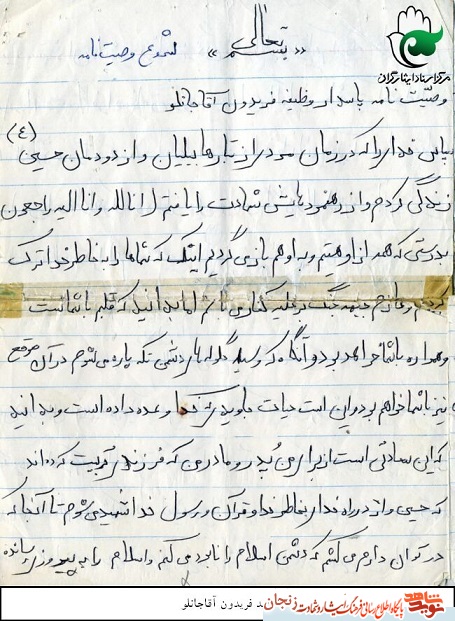 شروع وصیت نامه
«بسم تعالی»
مرکز اسناد ایثارگران
وصیت نامه پاسدار وظیفه فریدون آقاجانلو
(٤)
سپاس خدا را که در زمان مردی از تبار هابیلیان و از دودمان حسین
زندگی کردم و از رهنمودهایش شهادت را یافتم انا لله و انا الیه راجعون
بدرستی که همه از او هستیم و به او هم باز می گردیم اینک که شما را به خاطر خدا ترک
کردم و عازم جبهه جنگ بر علیه کفار می باشم اما بدانید که قلبم با شماست
و همواره با شما خواهد بود و آنگاه که وسیله گلوله های دشمن تکه پاره می شوم در آن موقع
نیز با شما خواهم بود و این است حیات جاوید که خدا وعده داده است و بدانید
که این سعادتی است از برای من پدر و مادر من که فرزندی تربیت کرده اند
که حسین وار در راه خدا بخاطر خدا و قرآن و رسول خدا شهید می شوم تا آنجا که
در توان دارم می کشم که دشمن اسلام را نابود می کنم و اسلام را به پیروزی رسانده
شهید فریدون آقاجانلو
نوید شاهد
پایگاه اطلاع رسانی فرهنگ ایثار و شهادت زنجان